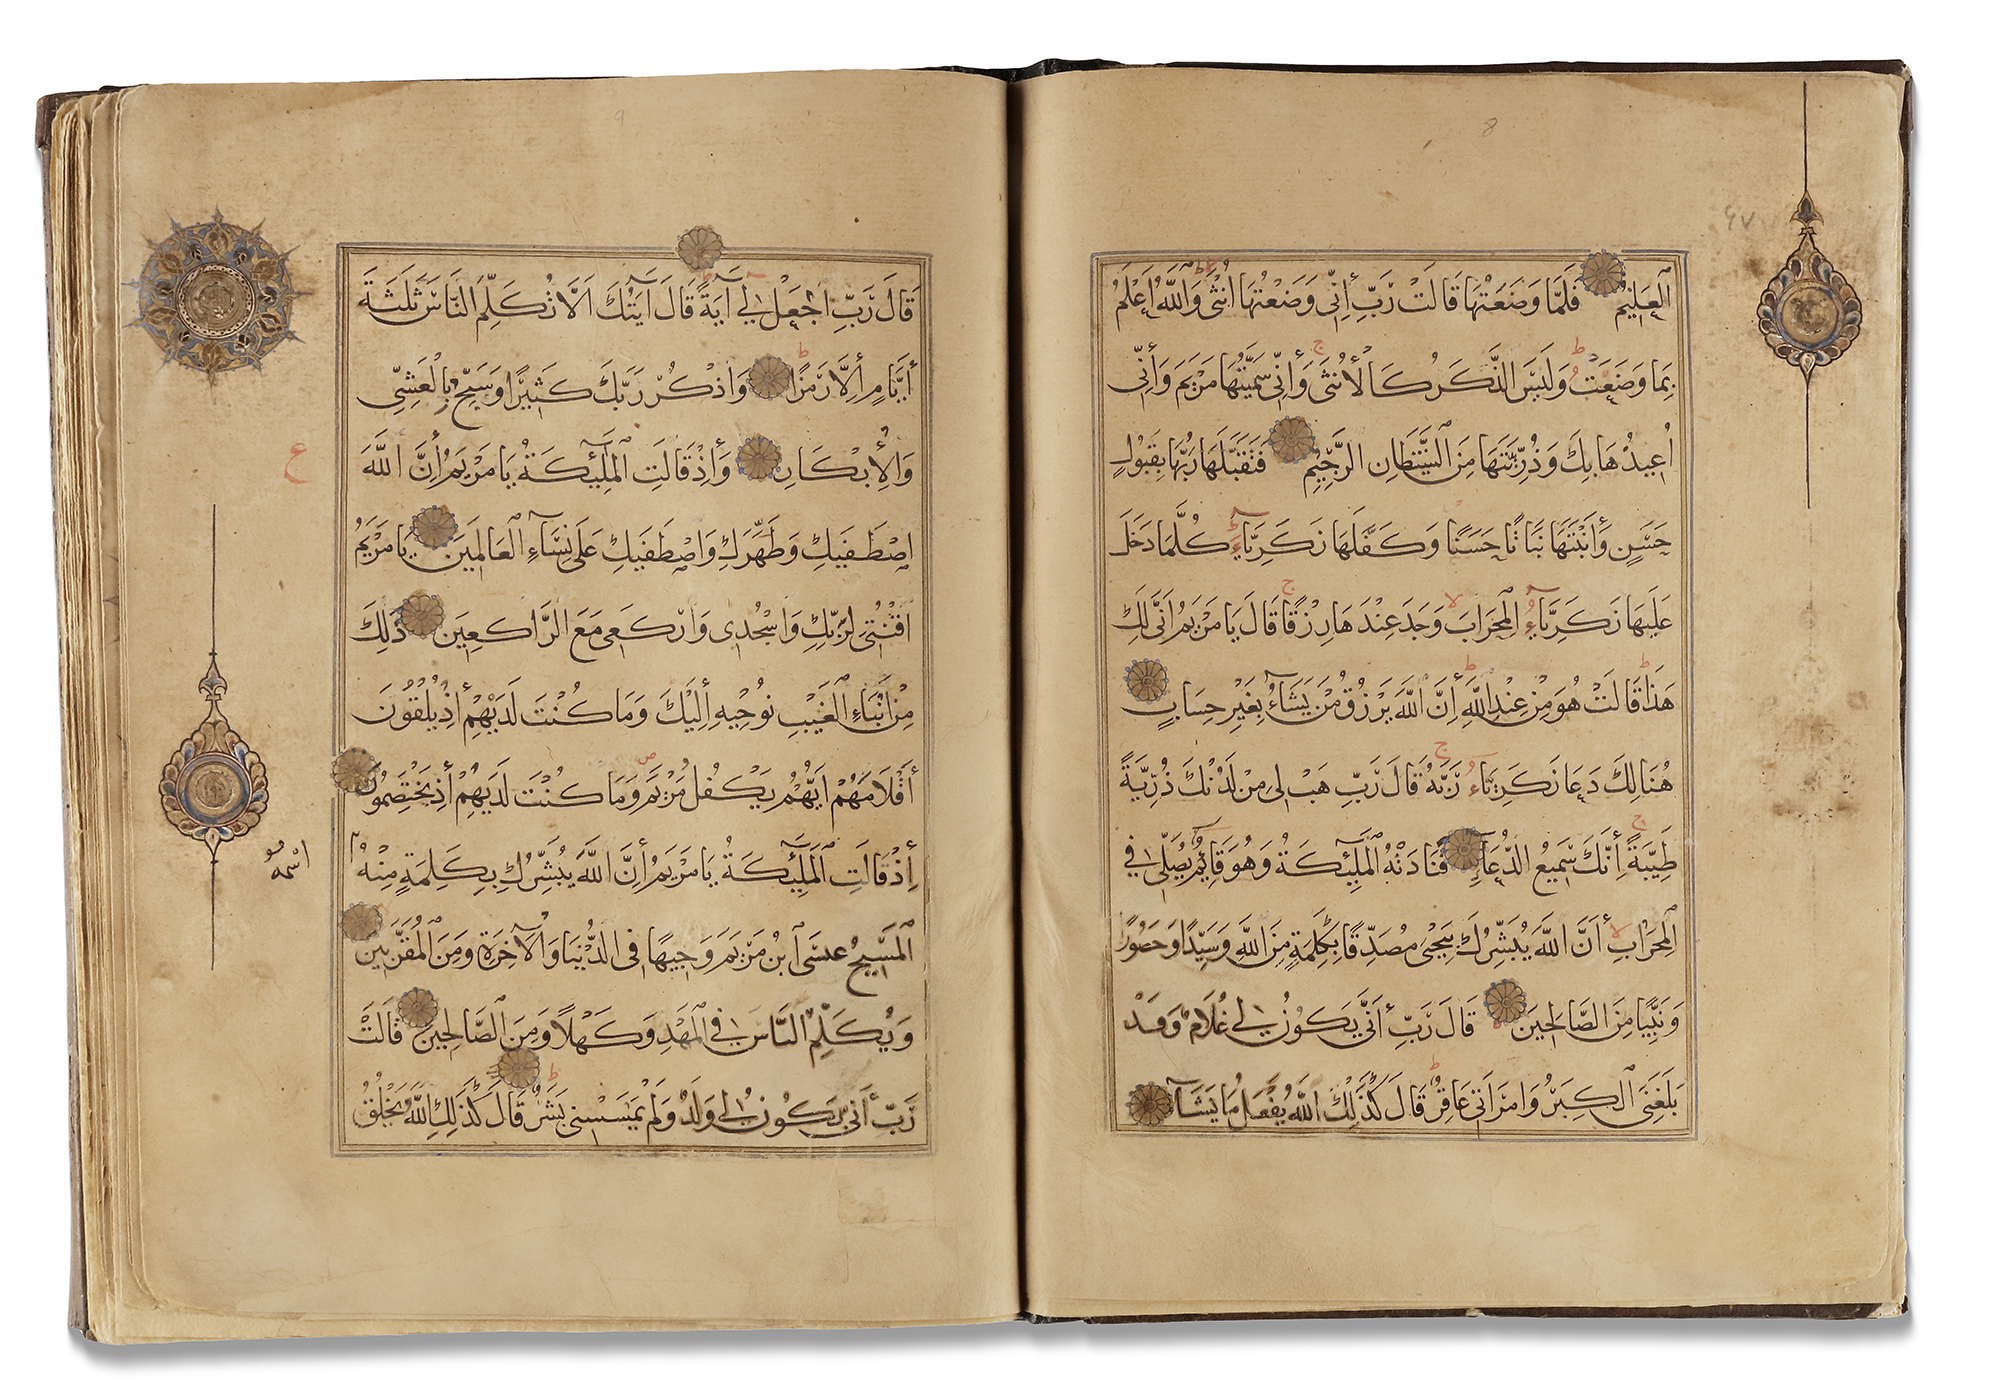 8
٤٧
ٱلْعَلِيمُ فَلَمَّا وَضَعَتْهَا قَالَتْ رَبِّ إِنِّي وَضَعْتُهَا أُنْثَى وَاللَّهُ أَعْلَمُ
بِمَا وَضَعَتْ وَلَيْسَ الذَّكَرُ كَالْأُنْثَى وَإِنِّي سَمَّيْتُهَا مَرْيَمَ وَإِنِّي
أُعِيذُهَا بِكَ وَذُرِّيَّتَهَا مِنَ الشَّيْطَانِ الرَّجِيمِ فَتَقَبَّلَهَا رَبُّهَا بِقَبُولٍ
حَسَنٍ وَأَنْبَتَهَا نَبَاتًا حَسَنًا وَكَفَّلَهَا زَكَرِيَّاءُ كُلَّمَا دَخَلَ
عَلَيْهَا زَكَرِيَّاءُ الْمِحْرَابَ وَجَدَ عِنْدَهَا رِزْقًا قَالَ يَا مَرْيَمُ أَنَّى لَكِ
هَذَا قَالَتْ هُوَ مِنْ عِنْدِ اللَّهِ إِنَّ اللَّهَ يَرْزُقُ مَنْ يَشَاءُ بِغَيْرِ حِسَابٍ
هُنَالِكَ دَعَا زَكَرِيَّاءُ رَبَّهُ قَالَ رَبِّ هَبْ لِي مِنْ لَدُنْكَ ذُرِّيَّةً
طَيِّبَةً إِنَّكَ سَمِيعُ الدُّعَاءِ فَنَادَتْهُ الْمَلَئِكَةُ وَهُوَ قَائِمٌ يُصَلِّي فِي
الْمِحْرَابِ أَنَّ اللَّهَ يُبَشِّرُكَ بِيَحْيَى مُصَدِّقًا بِكَلِمَةٍ مِنَ اللَّهِ وَسَيِّدًا وَحَصُورًا
وَنَبِيًّا مِنَ الصَّالِحِينَ قَالَ رَبِّ أَنَّى يَكُونُ لِي غُلَامٌ وَقَدْ
بَلَغَنِيَ الْكِبَرُ وَامْرَأَتِي عَاقِرٌ قَالَ كَذَلِكَ اللَّهُ يَفْعَلُ مَا يَشَاءُ
9
قَالَ رَبِّ اجْعَلْ لِي آيَةً قَالَ آيَتُكَ أَلَّا تُكَلِّمَ النَّاسَ ثَلَثَةَ
أَيَّامٍ إِلَّا رَمْزًا وَاذْكُرْ رَبَّكَ كَثِيرًا وَسَبِّحْ بِالْعَشِيِّ
وَالْإِبْكَارِ وَإِذْ قَالَتِ الْمَلَئِكَةُ يَا مَرْيَمُ إِنَّ اللَّهَ
ع
اصْطَفَيكِ وَطَهَّرَكِ وَاصْطَفَيكِ عَلَى نِسَاءِ الْعَالَمِينَ يَا مَرْيَمُ
اقْنُتِي لِرَبِّكِ وَاسْجُدِي وَارْكَعِي مَعَ الرَّاكِعِينَ ذَلِكَ
مِنْ أَنْبَاءِ الْغَيْبِ نُوحِيهِ إِلَيْكَ وَمَا كُنْتَ لَدَيْهِمْ إِذْ يُلْقُونَ
أَقْلَامَهُمْ أَيُّهُمْ يَكْفُلُ مَرْيَمَ وَمَا كُنْتَ لَدَيْهِمْ إِذْ يَخْتَصِمُونَ
إِذْ قَالَتِ الْمَلَئِكَةُ يَا مَرْيَمُ إِنَّ اللَّهَ يُبَشِّرُكِ بِكَلِمَةٍ مِنْهُ
اسْمُهُ
الْمَسِيحُ عِيسَى ابْنُ مَرْيَمَ وَجِيهًا فِي الدُّنْيَا وَالْآخِرَةِ وَمِنَ الْمُقَرَّبِينَ
وَيُكَلِّمُ النَّاسَ فِي الْمَهْدِ وَكَهْلًا وَمِنَ الصَّالِحِينَ قَالَتْ
رَبِّ أَنَّى يَكُونُ لِي وَلَدٌ وَلَمْ يَمْسَسْنِي بَشَرٌ قَالَ كَذَلِكِ اللَّهُ يَخْلُقُ